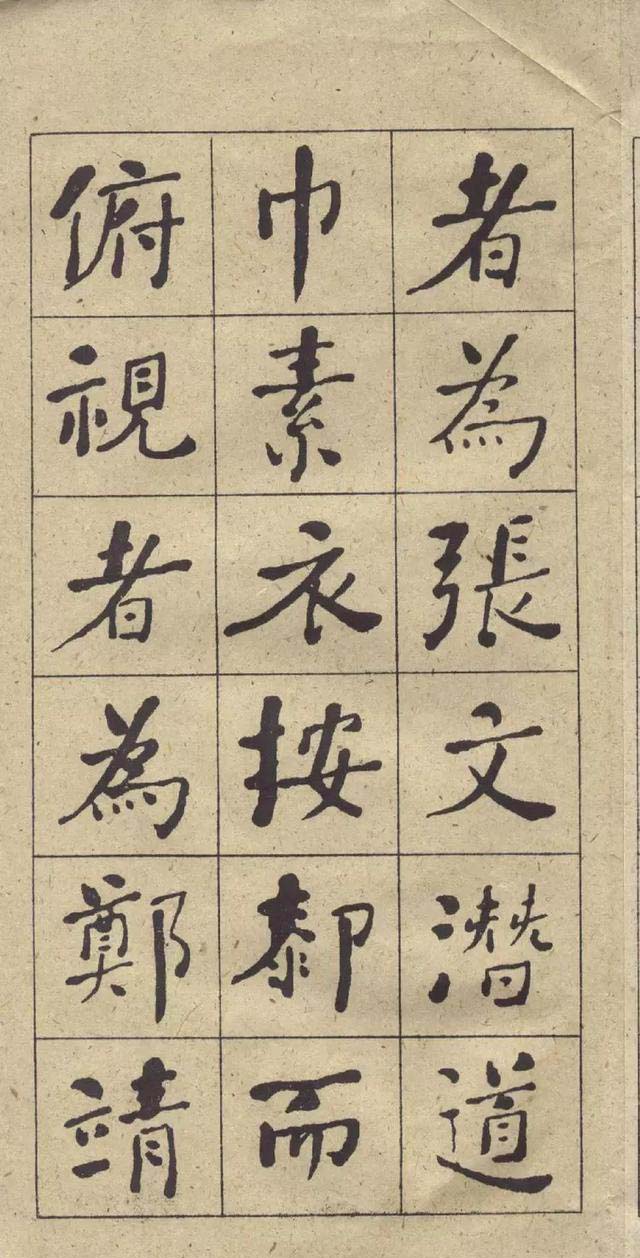 者為張文潛道
巾素衣按郀而
俯視者為鄭靖